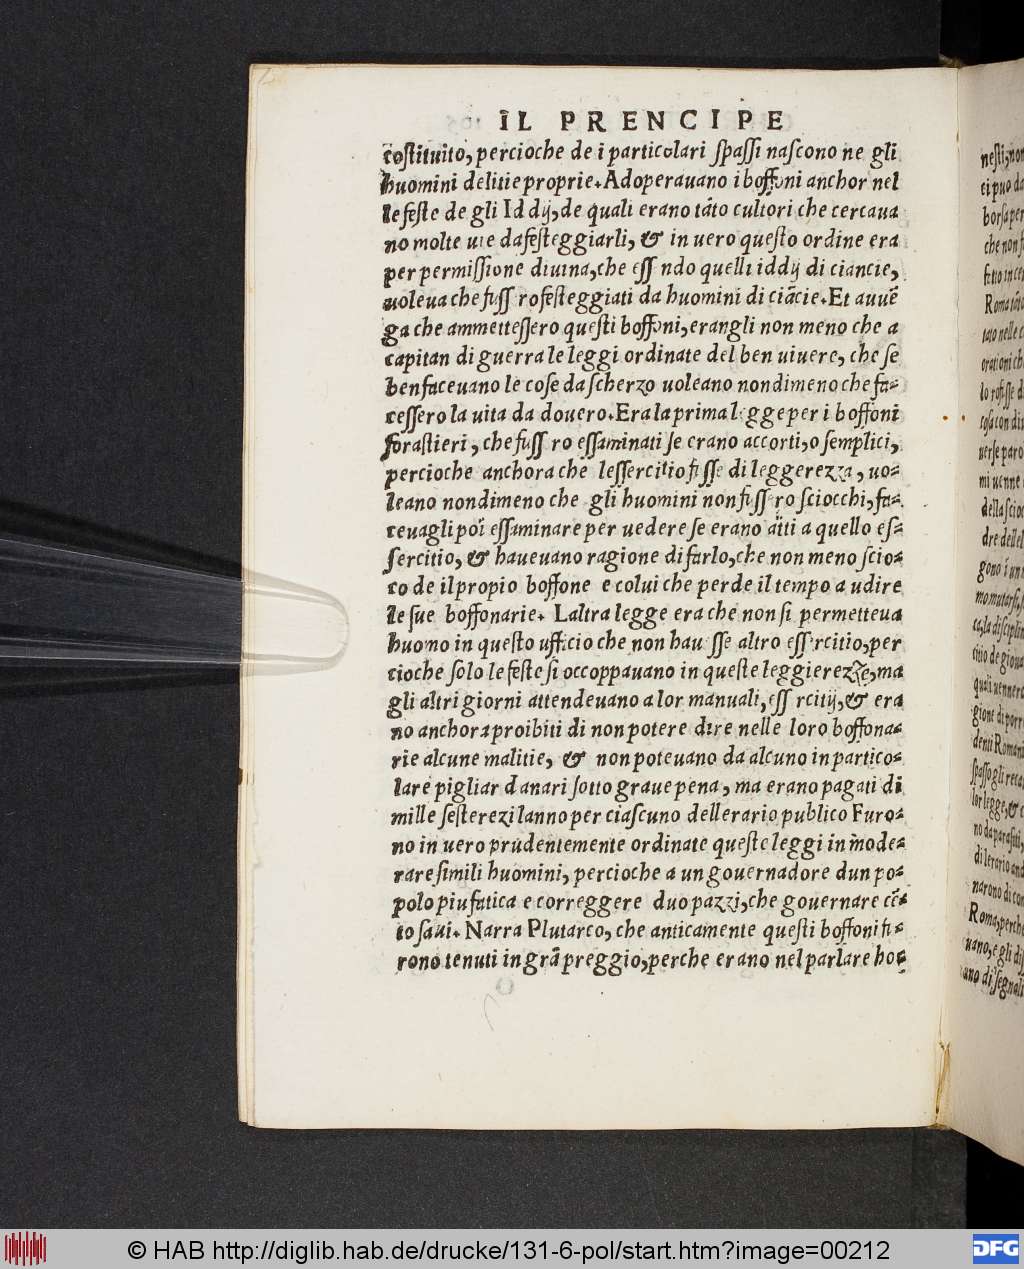 IL PRENCIPE
costituito, percioche de i particolari spassi nascono ne gli
huomini delitie proprie. Adoperavano i boffoni anchor nel
le feste de gli Iddij, de quali erano tãto cultori che cercaua
no molte uie dafesteggiarli, & in uero questo ordine era
per permissione diuina, che ess ndo quelli iddij di ciancie,
uoleua che fuss ro festeggiati da huomini di ciãcie. Et auuẽ
ga che ammettessero questi boffoni, erangli non meno che a
capitan di guerra le leggi ordinate del ben uiuere, che se
ben faceuano le cose da scherzo uoleano nondimeno che fa-
cessero la uita da douero. Era la prima legge per i boffoni
forastieri, che fuss ro essaminati se erano accorti, o semplici,
percioche anchora che lessercitio fusse di leggerezza, uo-
leano nondimeno che gli huomini non fuss ro sciocchi, fa-
ceuagli poi essaminare per uedere se erano atti a quello es-
sercitio, & haueuano ragione di farlo, che non meno scio-
co de il propio boffone e colui che perde il tempo a udire
le sue boffonarie. Laltra legge era che non si permetteua
huomo in questo ufficio che non hau sse altro ess rcitio, per
cioche solo le feste si occoppauano in queste leggierezze, ma
gli altri giorni attendeuano a lor manuali, ess rcitij, & era
no anchora proibiti di non potere dire nelle loro boffona-
rie alcune malitie, & non poteuano da alcuno in partico-
lare pigliar danari sotto graue pena, ma erano pagati di
mille sesterezi lanno per ciascuno dellerario publico Furo-
no in uero prudentemente ordinate queste leggi in mode-
rare simili huomini, percioche a un gouernadore dun po-
polo piu fatica e correggere duo pazzi, che gouernare cẽ-
to saui. Narra Plutarco, che anticamente questi boffoni fu-
rono tenuti in grã preggio, perche erano nel parlare ho-
nesti, non
ci puo da
borsa per
che non
Roma
tato nelle
orationi ch
della scioc
gono i un
ca, la disciplin
citio de gioua
quali uennero
gione di porre
denti Romani
lor legge, & c
no da parasiti,
di lerario and
narono di con
Roma, perche
uano, e gli dis
ano di segnali
© HAB http://diglib.hab.de/drucke/131-6-pol/start.htm?image=00212
DFG